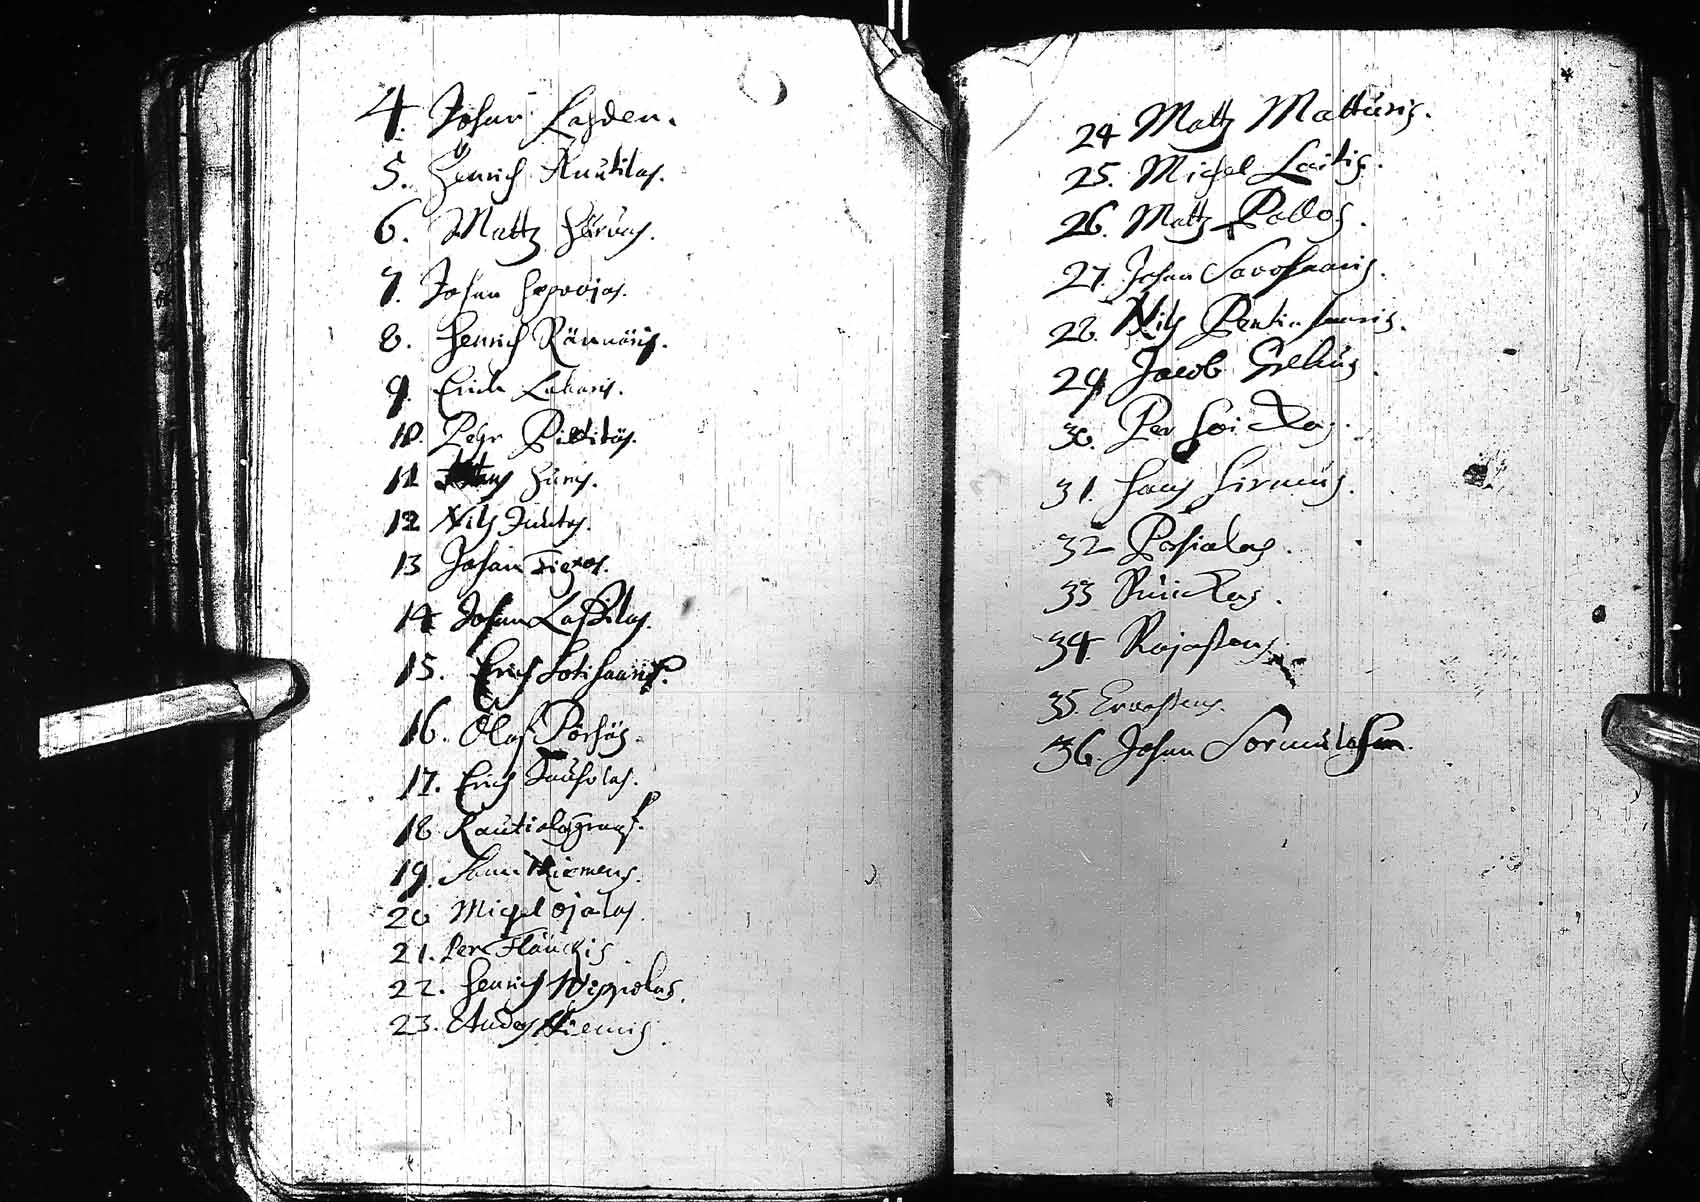 4. Johan Lahden.
5. Henrich Knutilas.
6. Mattz Härvas.
7. Johan Hepoojas.
8. Henrich Rännäris.
9. Erich Lukaris.
10. Pehr Pielitös.
11 Hurus.
12 Nils Juutas.
13 Johan
14 Johan Lassilas.
15. Erich
16. Olof Pörhös.
17. Erich Tauholas.
18 Rautialas
19. Niemens.
20 Michel Ojalas.
21. Per Flänckis
22. Henrich Wippolas.
23. Anders Niemis.
24 Mattz Matturis.
25. Michel Laitis.
26. Mattz Pallos.
27. Johan Savohaaris.
28. Nils Pentinhaaris.
29 Jacob Grelius.
30. Per Hoickas.
31. Hans Hirmus.
32 Posialas.
33 Ruickas.
34. Rajastens.
35. Ervastens.
36. Johan Sormulasun.